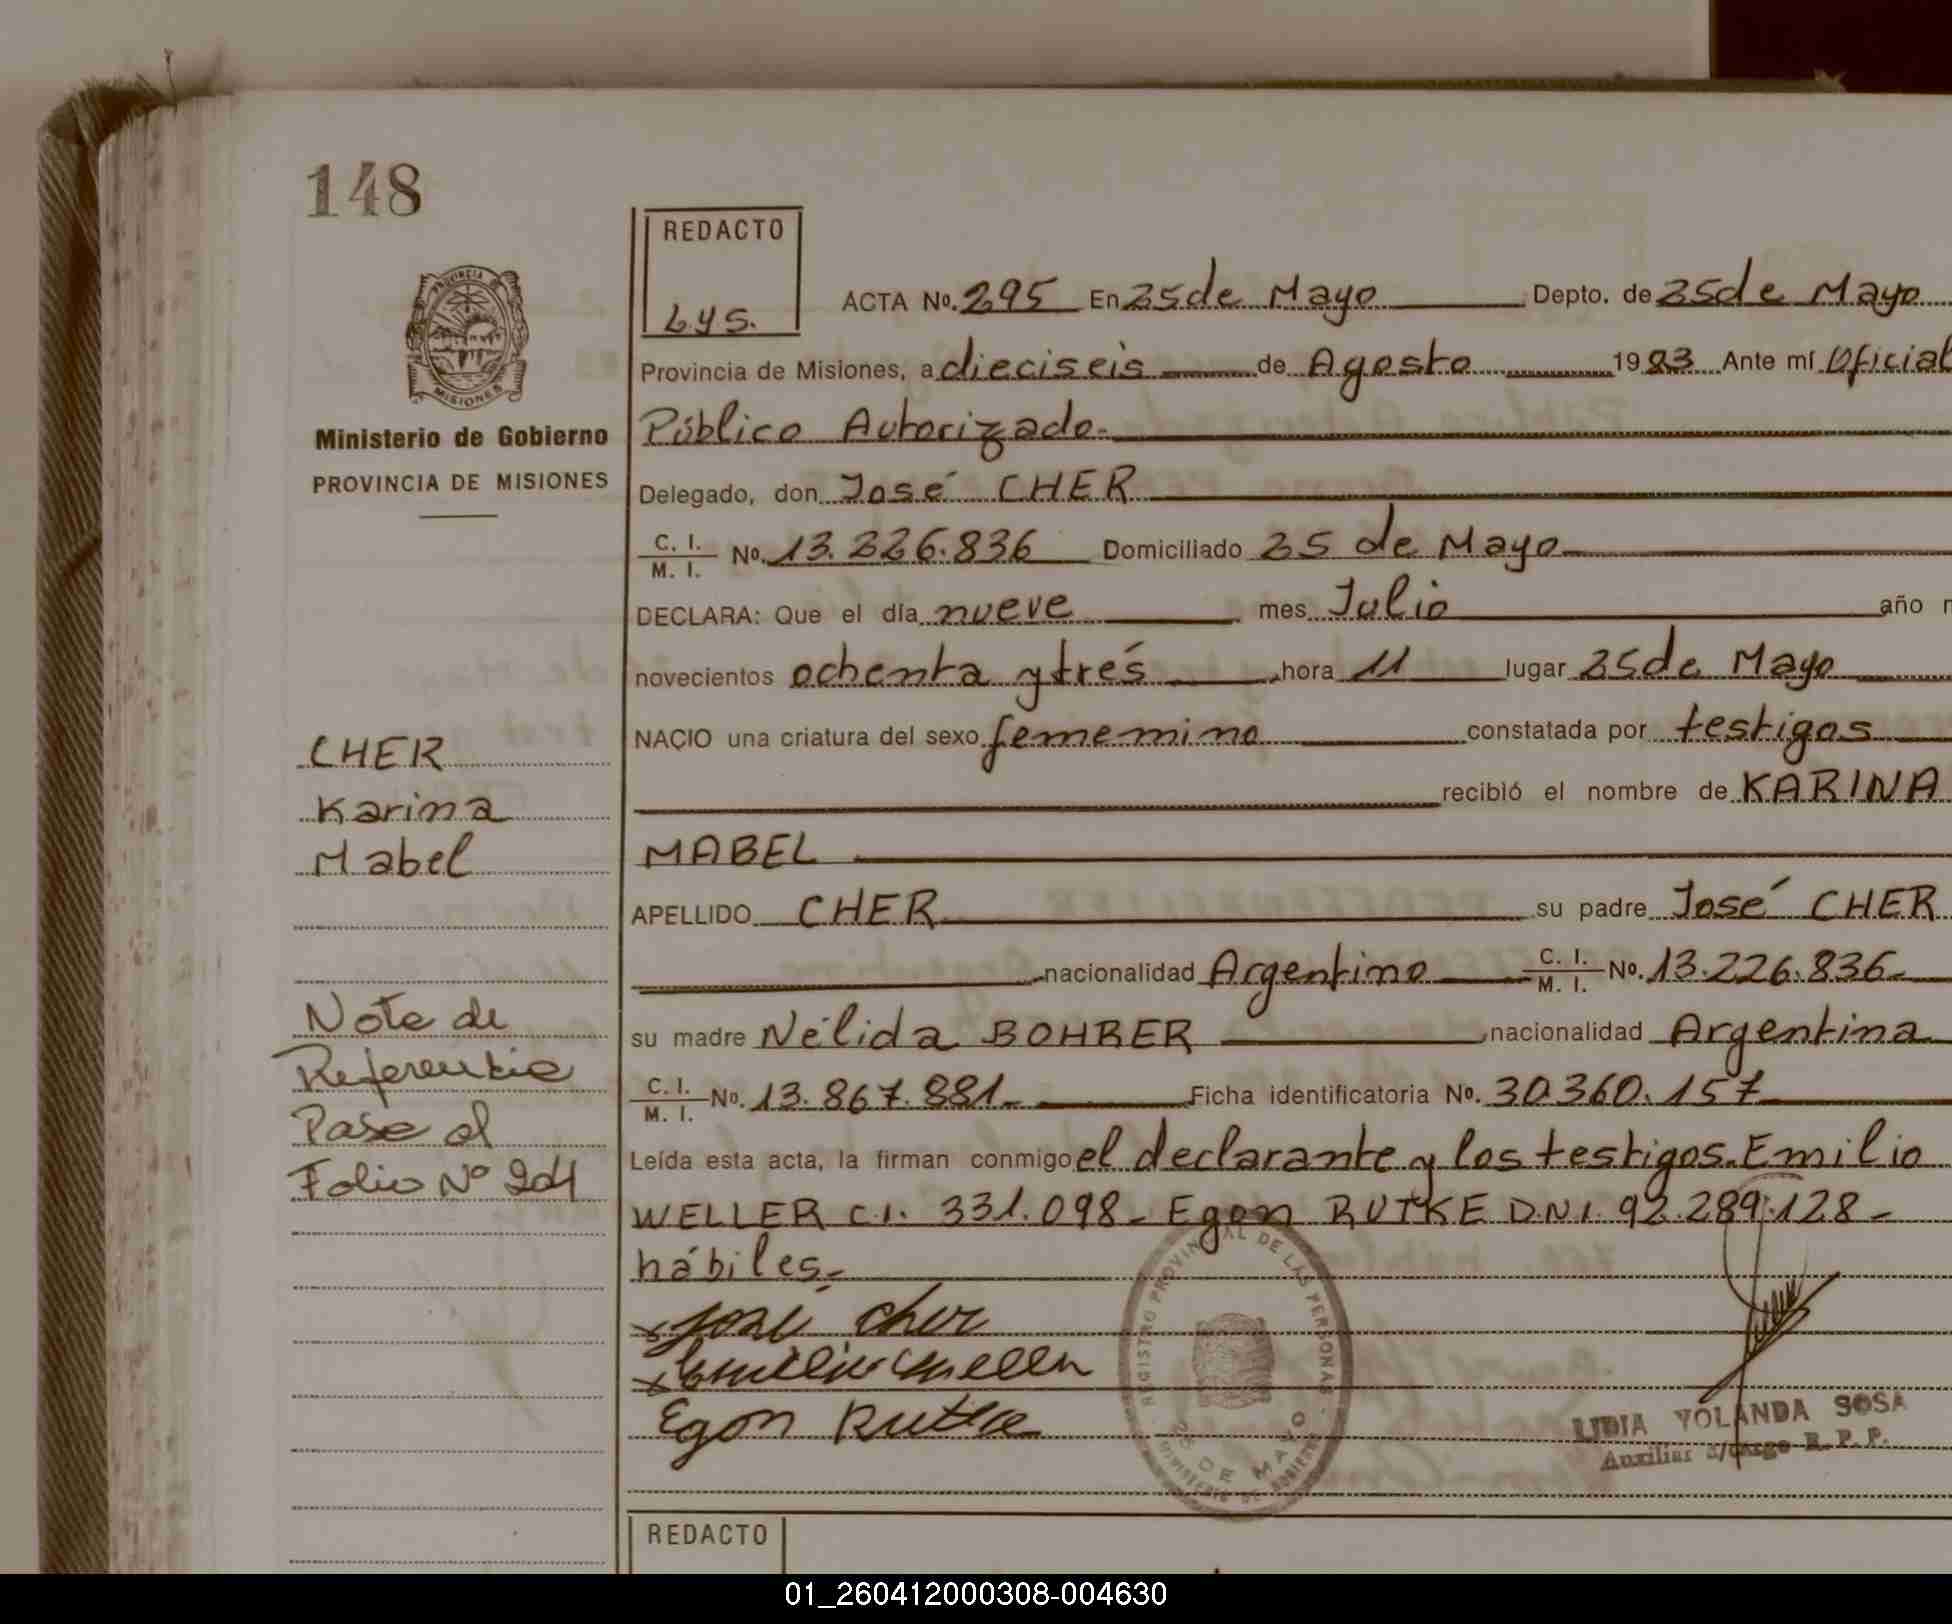 148
REDACTO
Lys.
PROVINCIA
MISIONES
Ministerio de Gobierno
PROVINCIA DE MISIONES
ACTA No. 295 En 25 de Mayo Depto. de 25 de Mayo
Provincia de Misiones, a dieciseis de Agosto 1983 Ante mí Oficial
Público Autorizado.
Delegado, don José CHER
C. I. / M. I. No. 13.226.836 Domiciliado 25 de Mayo
DECLARA: Que el día nueve mes Julio año
novecientos ochenta y trés hora 11 lugar 25 de Mayo
NACIO una criatura del sexo femenino constatada por testigos
recibió el nombre de KARINA
MABEL
APELLIDO CHER su padre José CHER
nacionalidad Argentino C. I. / M. I. No. 13.226.836-
su madre Nélida BOHRER nacionalidad Argentina
C. I. / M. I. No. 13.867.881- Ficha identificatoria No. 30.360.157
Leída esta acta, la firman conmigo el declarante y los testigos. Emilio
WELLER C.I. 331.098- Egon RUTKE D.N.I. 92.289.128-
hábiles.-
CHER
Karina
Mabel
Nota de
Referencia
Pase al
Folio Nº 204
José Cher
Emilio Weller
Egon Rutke
REGISTRO PROVINCIAL DE LAS PERSONAS
25 DE MAYO
MINISTERIO DE GOBIERNO
LIDIA YOLANDA SOSA
Auxiliar a/cargo R. P. P.
REDACTO
01_260412000308-004630